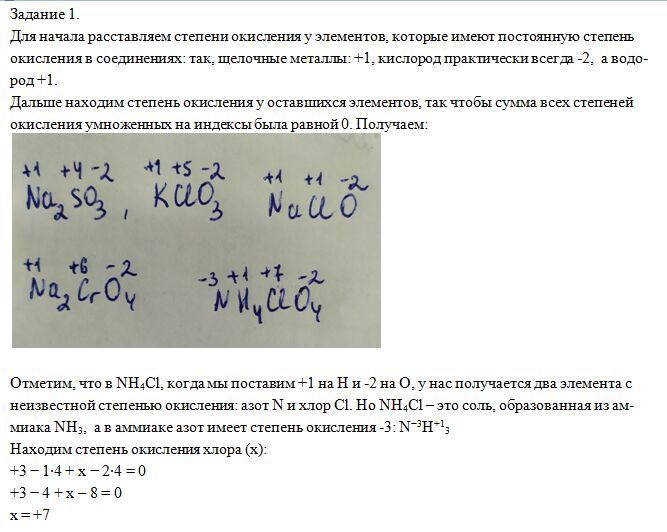 Задание 1.
Для начала расставляем степени окисления у элементов, которые имеют постоянную степень
окисления в соединениях: так, щелочные металлы: +1, кислород практически всегда -2, а водо-
род +1.
Дальше находим степень окисления у оставшихся элементов, так чтобы сумма всех степеней
окисления умноженных на индексы была равной 0. Получаем:
+1 +4 -2 +1 +5 -2 +1 +1 -2
Na₂SO₃, KClO₃ NaClO
+1 +6 -2 -3 +1 +7 -2
Na₂CrO₄ NH₄ClO₄
Отметим, что в NH₄Cl, когда мы поставим +1 на H и -2 на O, у нас получается два элемента с
неизвестной степенью окисления: азот N и хлор Cl. Но NH₄Cl – это соль, образованная из ам-
миака NH₃, а в аммиаке азот имеет степень окисления -3: N⁻³H⁺¹₃
Находим степень окисления хлора (x):
+3 − 1·4 + x − 2·4 = 0
+3 − 4 + x – 8 = 0
x = +7